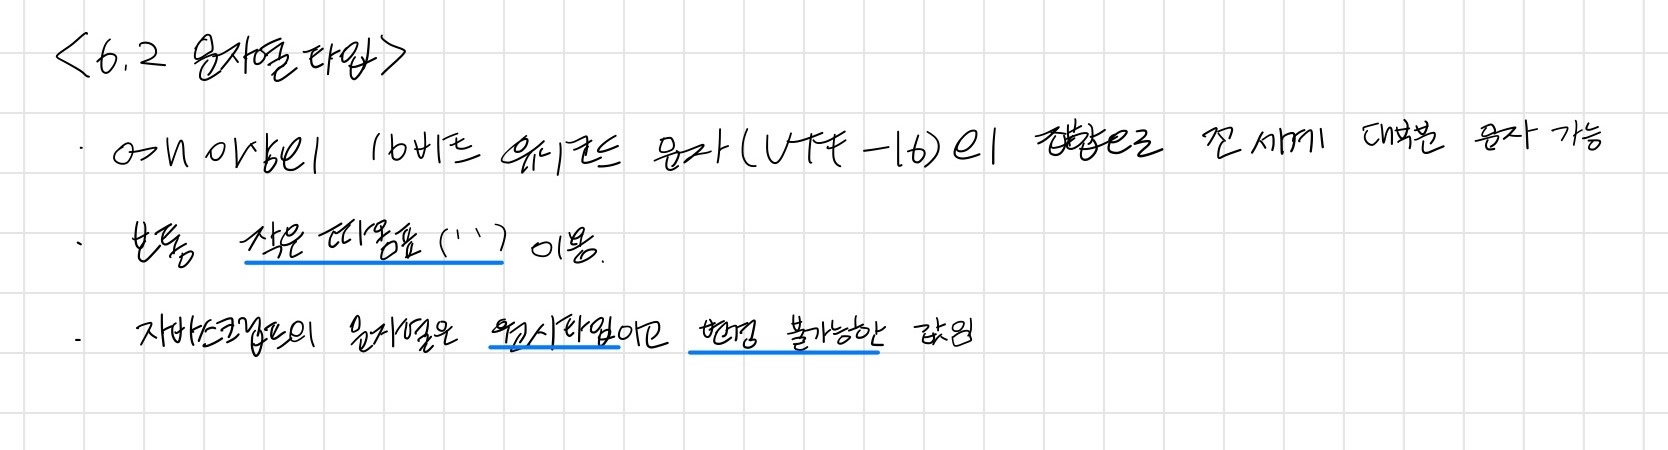 <6.2 문자열 타입>
· 0개 이상의 16비트 유니코드 문자(UTF-16)의 집합으로 전 세계 대부분 문자 가능
· 보통 작은 따옴표('') 이용.
· 자바스크립트의 문자열은 원시타입이고 변경 불가능한 값임